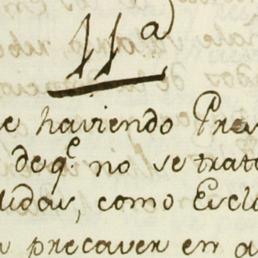 11ª
e haviendo Pres
de qᵉ no se trate
didas, como Escla
precaver en a